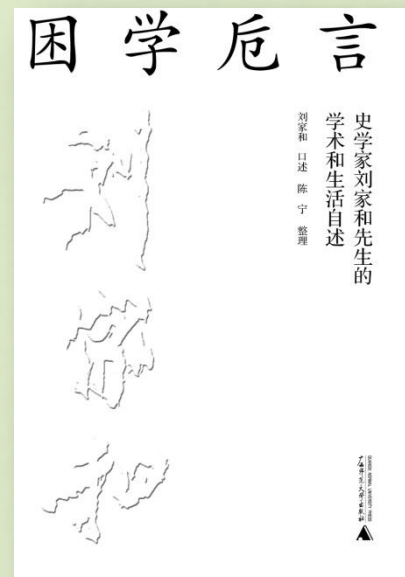 困学卮言
史学家刘家和先生的
学术和生活自述
刘家和 口述 陈 宁 整理
刘家和
广西师范大学出版社